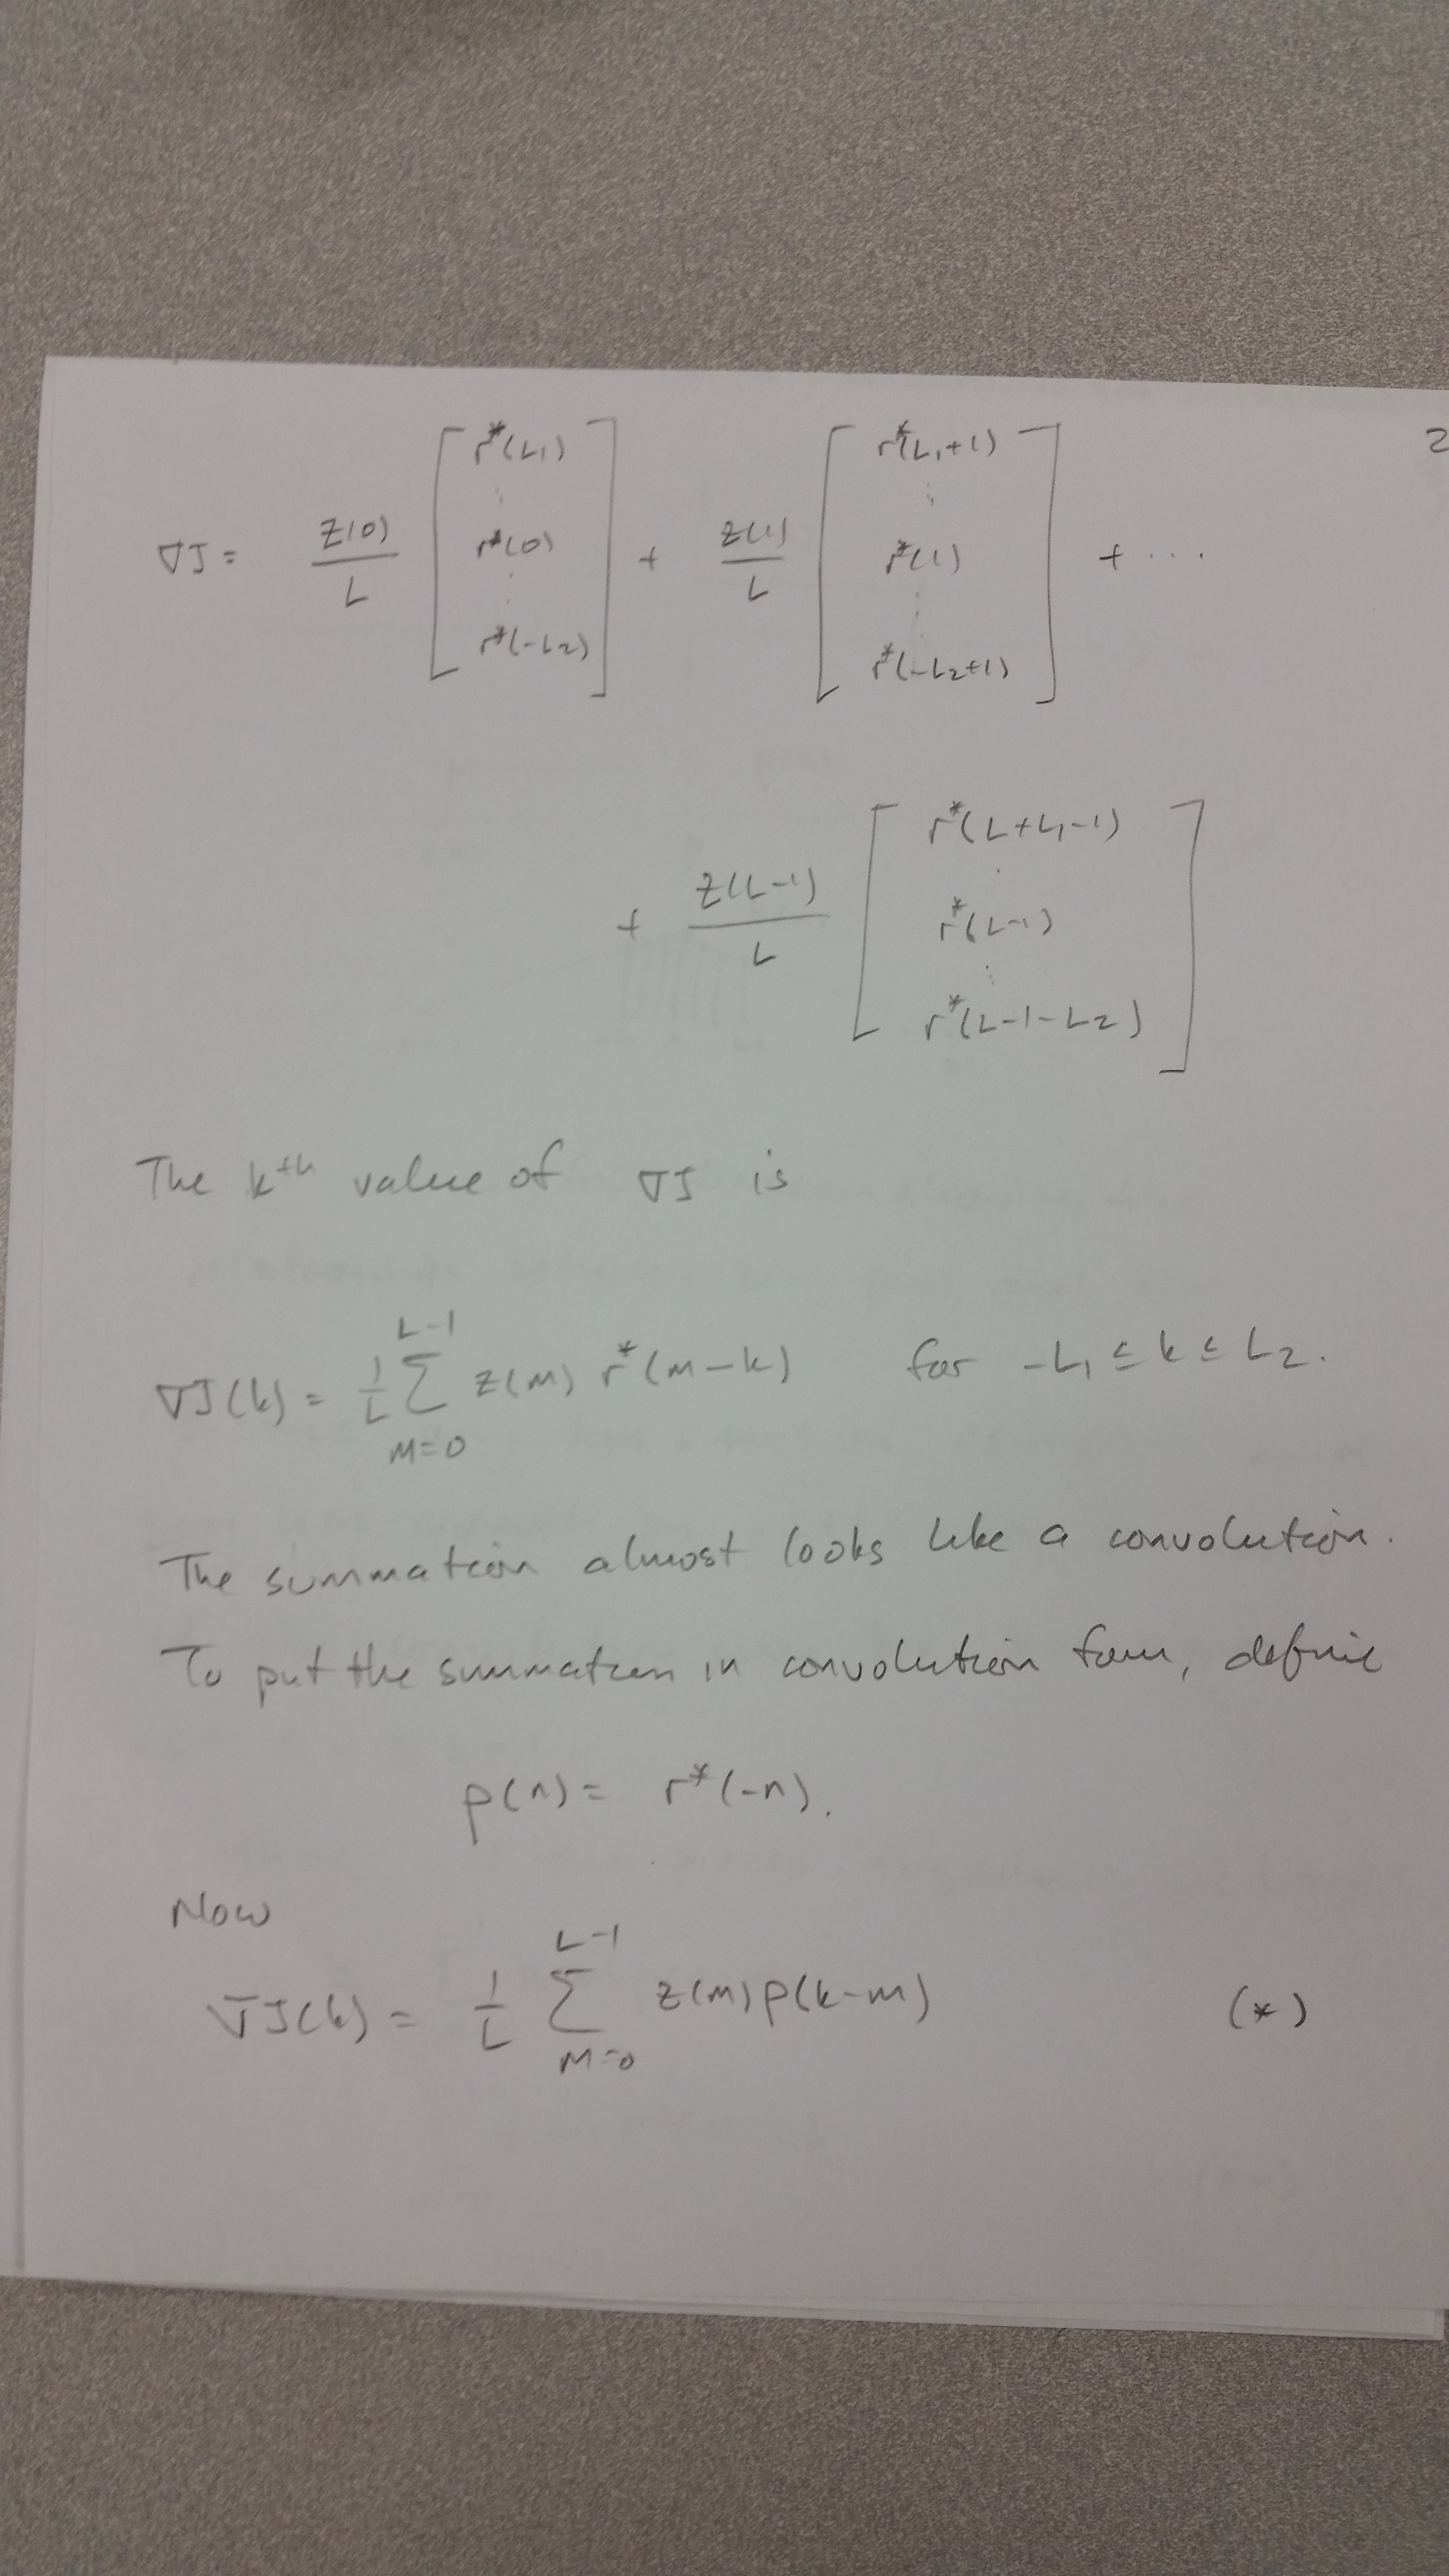 2
∇J = z(0)/L [ r*(L₁) ⋮ r*(0) ⋮ r*(-L₂) ] + z(1)/L [ r*(L₁+1) ⋮ r*(1) ⋮ r*(-L₂+1) ] + ...
+ z(L-1)/L [ r*(L+L₁-1) ⋮ r*(L-1) ⋮ r*(L-1-L₂) ]
The kth value of ∇J is
∇J(k) = 1/L Σ_{m=0}^{L-1} z(m) r*(m-k) for -L₁ ≤ k ≤ L₂.
The summation almost looks like a convolution.
To put the summation in convolution form, define
ρ(n) = r*(-n).
Now
∇J(k) = 1/L Σ_{m=0}^{L-1} z(m) ρ(k-m) (*)